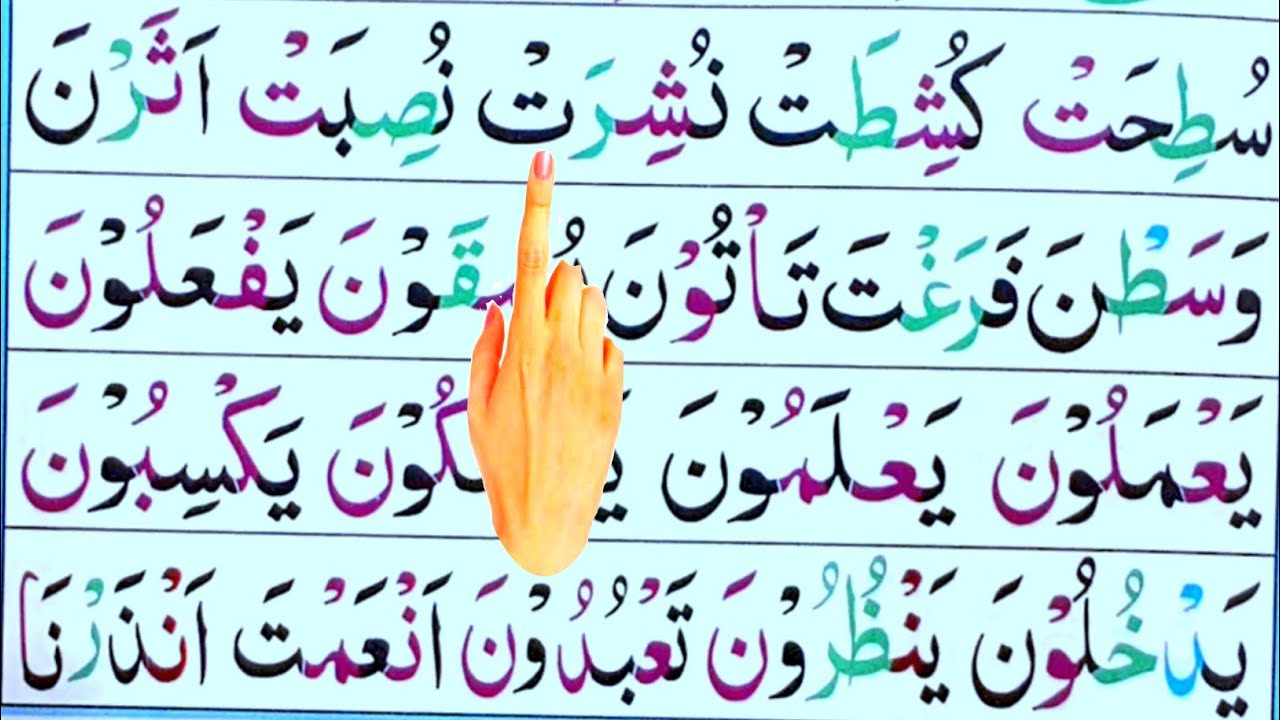 سُطِحَتْ كُشِطَتْ نُشِرَتْ نُصِبَتْ اَثَرْنَ
وَسَطْنَ فَرَغْتَ تَاْتُوْنَ يَفْعَلُوْنَ
يَعْمَلُوْنَ يَعْلَمُوْنَ يَكْسِبُوْنَ
يَدْخُلُوْنَ يَنْظُرُوْنَ تَعْبُدُوْنَ اَنْعَمْتَ اَنْذَرْنَا